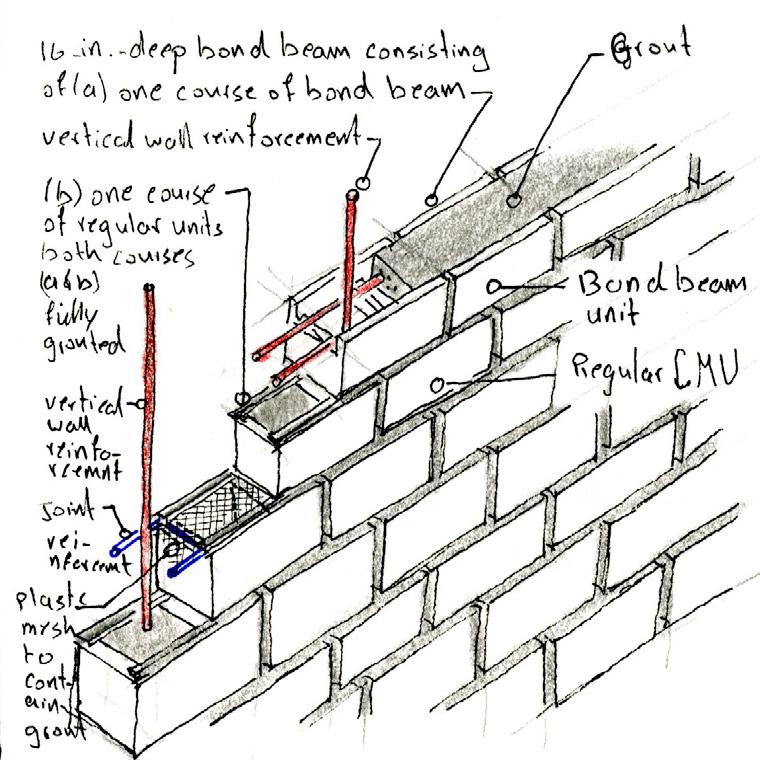 16-in.-deep bond beam consisting
of (a) one course of bond beam
vertical wall reinforcement
Grout
(b) one course
of regular units
both courses
(a&b)
fully
grouted
Bond beam
unit
Regular CMU
vertical
wall
reinfo-
rcemnt
Joint
rei-
nforcemnt
plastc
mesh
to
cont-
ain
grout